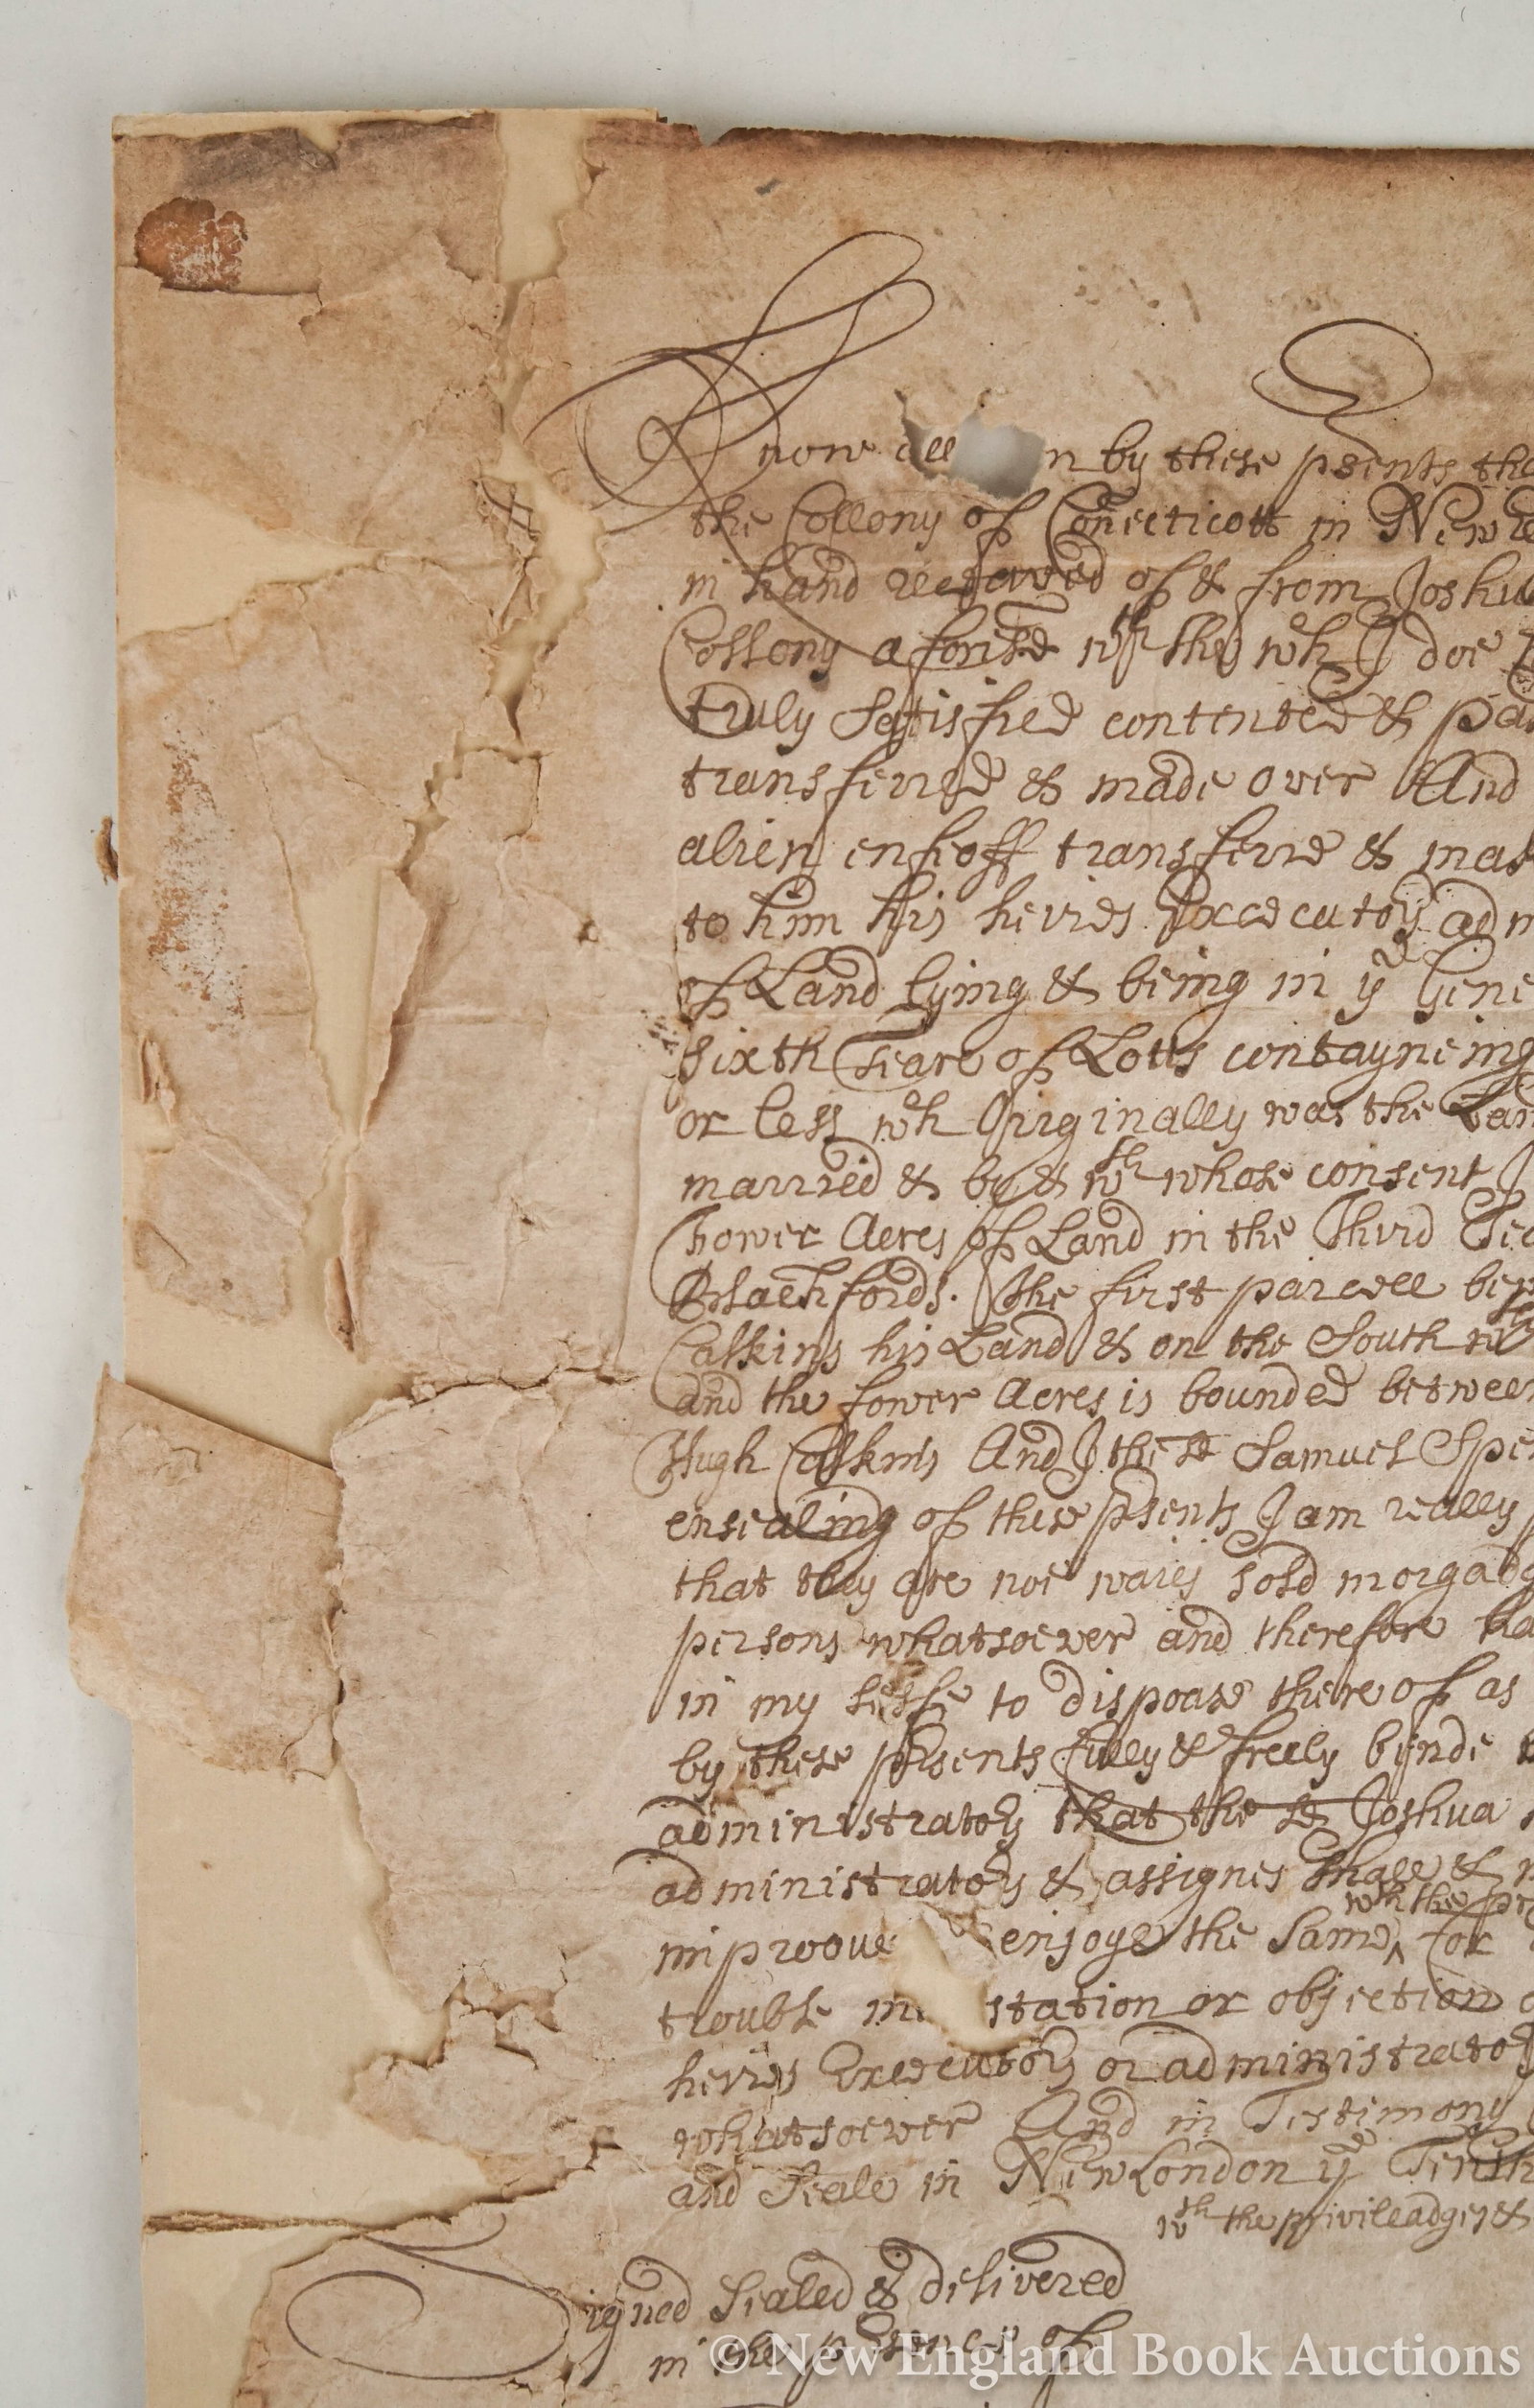 Know all n by these psents tha
the Collony of Conecticott in New E
in hand receaved of & from Joshua
Collony aforesd wth the wch I doe
truly satisfied contented & pai
transferred & made over And
alien enfeoff transferre & mak
to him his heires Execcutors adm
of Land lying & being in ye Gene
sixth Teare of Lotts contayneing
or less wch Oirginally was the Lan
married & by & wth whose consent I
Fower Acres of Land in the Third Tea
Blatchfords. The first parcell be
Calkins his Land & on the South wth
and the fower Acres is bounded between
Hugh Calkins And I the sd Samuel Spen
ensealing of these psents I am really
that they are noe waies sold morgadg
persons whatsoever and therefore ha
in my selfe to dispoase thereof as
by these psents fully & freely bynde
administrators that the sd Joshua
administrators & assignes shall & m
wth the pr
improove enjoye the same ^ for
trouble m station or objection
heires Execcutors or administrators
whatsoever And in Testimony
and Seale in New London ye Tenth
wth the priviledges &
Signed Sealed & delivered
in the psence of
© New England Book Auctions